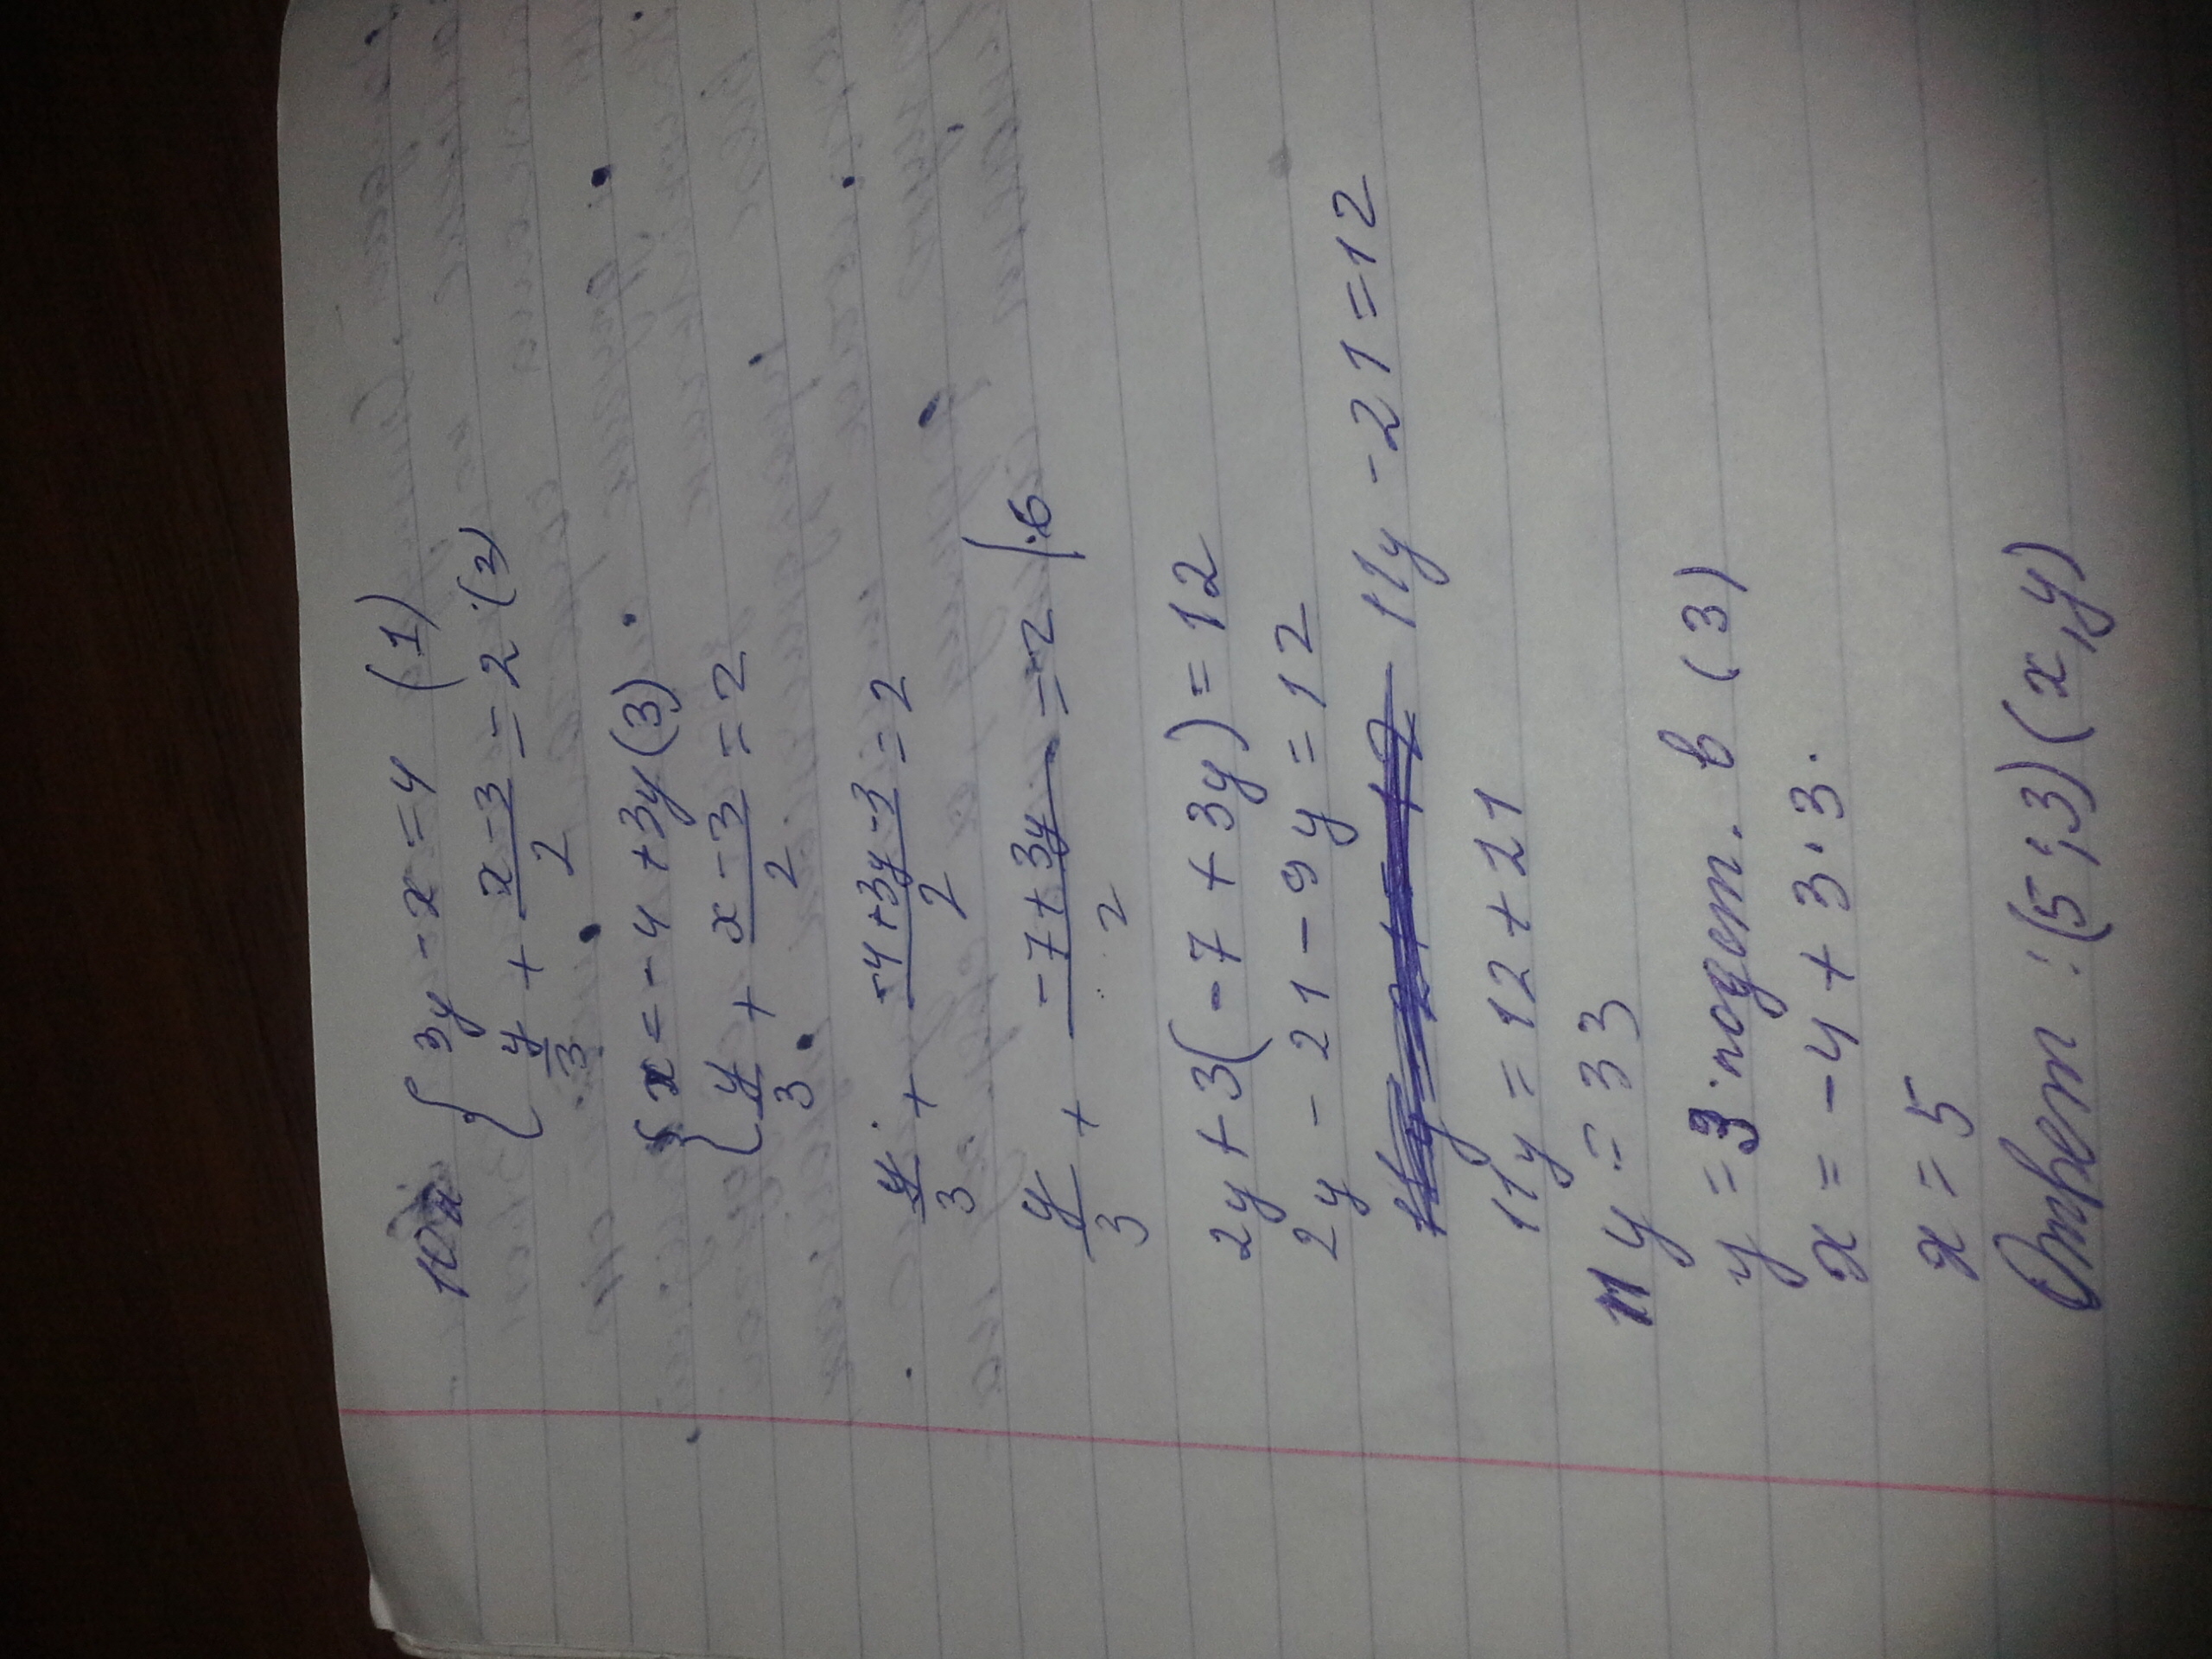 { 3y - x = 4 (1)
y/3 + (x-3)/2 = 2 (2)
{ x = -4 + 3y (3)
y/3 + (x-3)/2 = 2
y/3 + (-4+3y-3)/2 = 2
y/3 + (-7+3y)/2 = 2 |·6
2y + 3(-7 + 3y) = 12
2y - 21 - 9y = 12
11y - 21 = 12
11y = 12 + 21
11y = 33
y = 3 подст. в (3)
x = -4 + 3·3.
x = 5
Ответ: (5;3) (x,y)